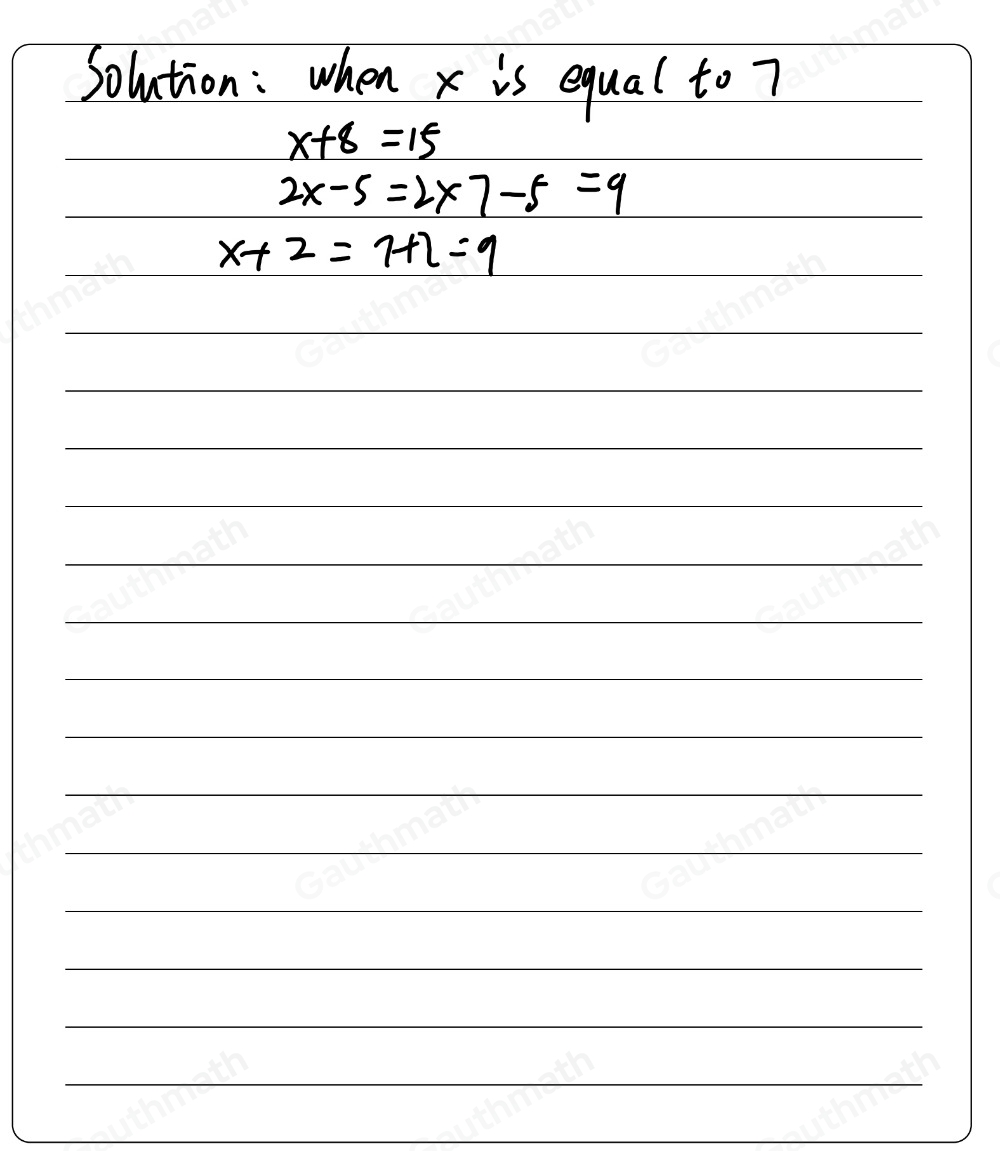 Solution: when x is equal to 7
x+8 =15
2x-5 =2×7-5 =9
x+2 = 7+2=9